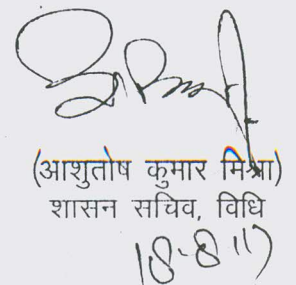 (आशुतोष कुमार मिश्रा)
शासन सचिव, विधि
18-8-17